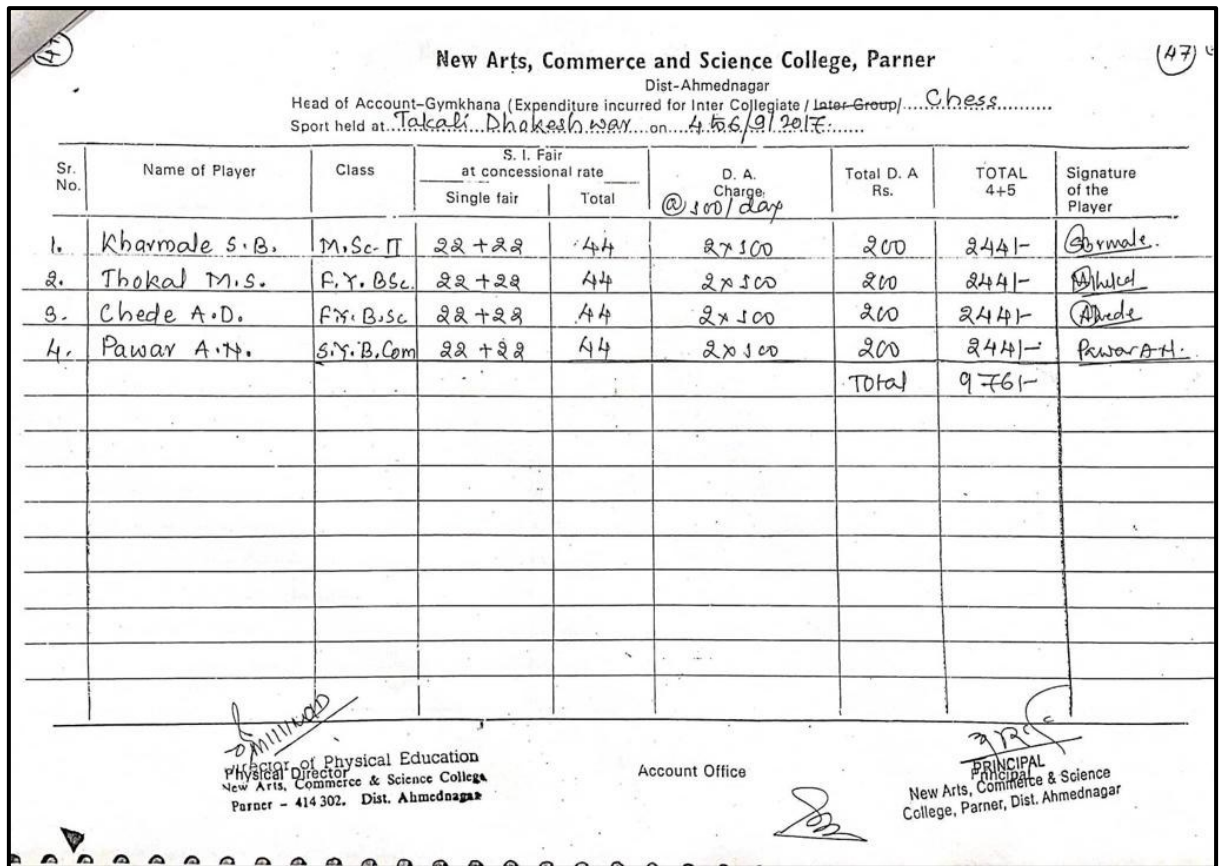 (47)
New Arts, Commerce and Science College, Parner
Dist-Ahmednagar
Head of Account-Gymkhana (Expenditure incurred for Inter Collegiate / Inter Group/....Chess..........
Sport held at...Takali Dhokeshwar...on....4 to 6/9/2017.......
Sr. No. Name of Player Class S. I. Fair at concessional rate Single fair Total D. A. Charge @ 100/day Total D. A Rs. TOTAL 4+5 Signature of the Player
1. Kharmale S.B. M.Sc-II 22+22 44 2x100 200 244/-
2. Thokal M.S. F.Y. BSc. 22+22 44 2x100 200 244/-
3. Chede A.D. F.Y. B.Sc 22+22 44 2x100 200 244/-
4. Pawar A.N. S.Y.B.Com 22+22 44 2x100 200 244/- Pawar A.N.
Total 976/-
Director of Physical Education
Physical Director
New Arts, Commerce & Science College
Parner - 414 302. Dist. Ahmednagar
Account Office
PRINCIPAL
Principal
New Arts, Commerce & Science
College, Parner, Dist. Ahmednagar